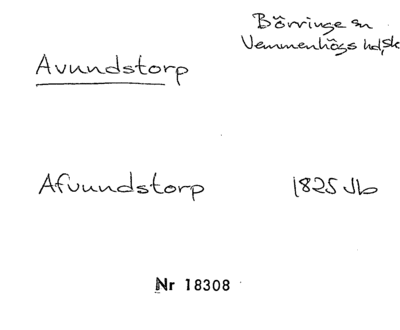 Börringe sn
Vemmenhögs hd, Sk
Avundstorp
Afvundstorp 1825 Jb
Nr 18308